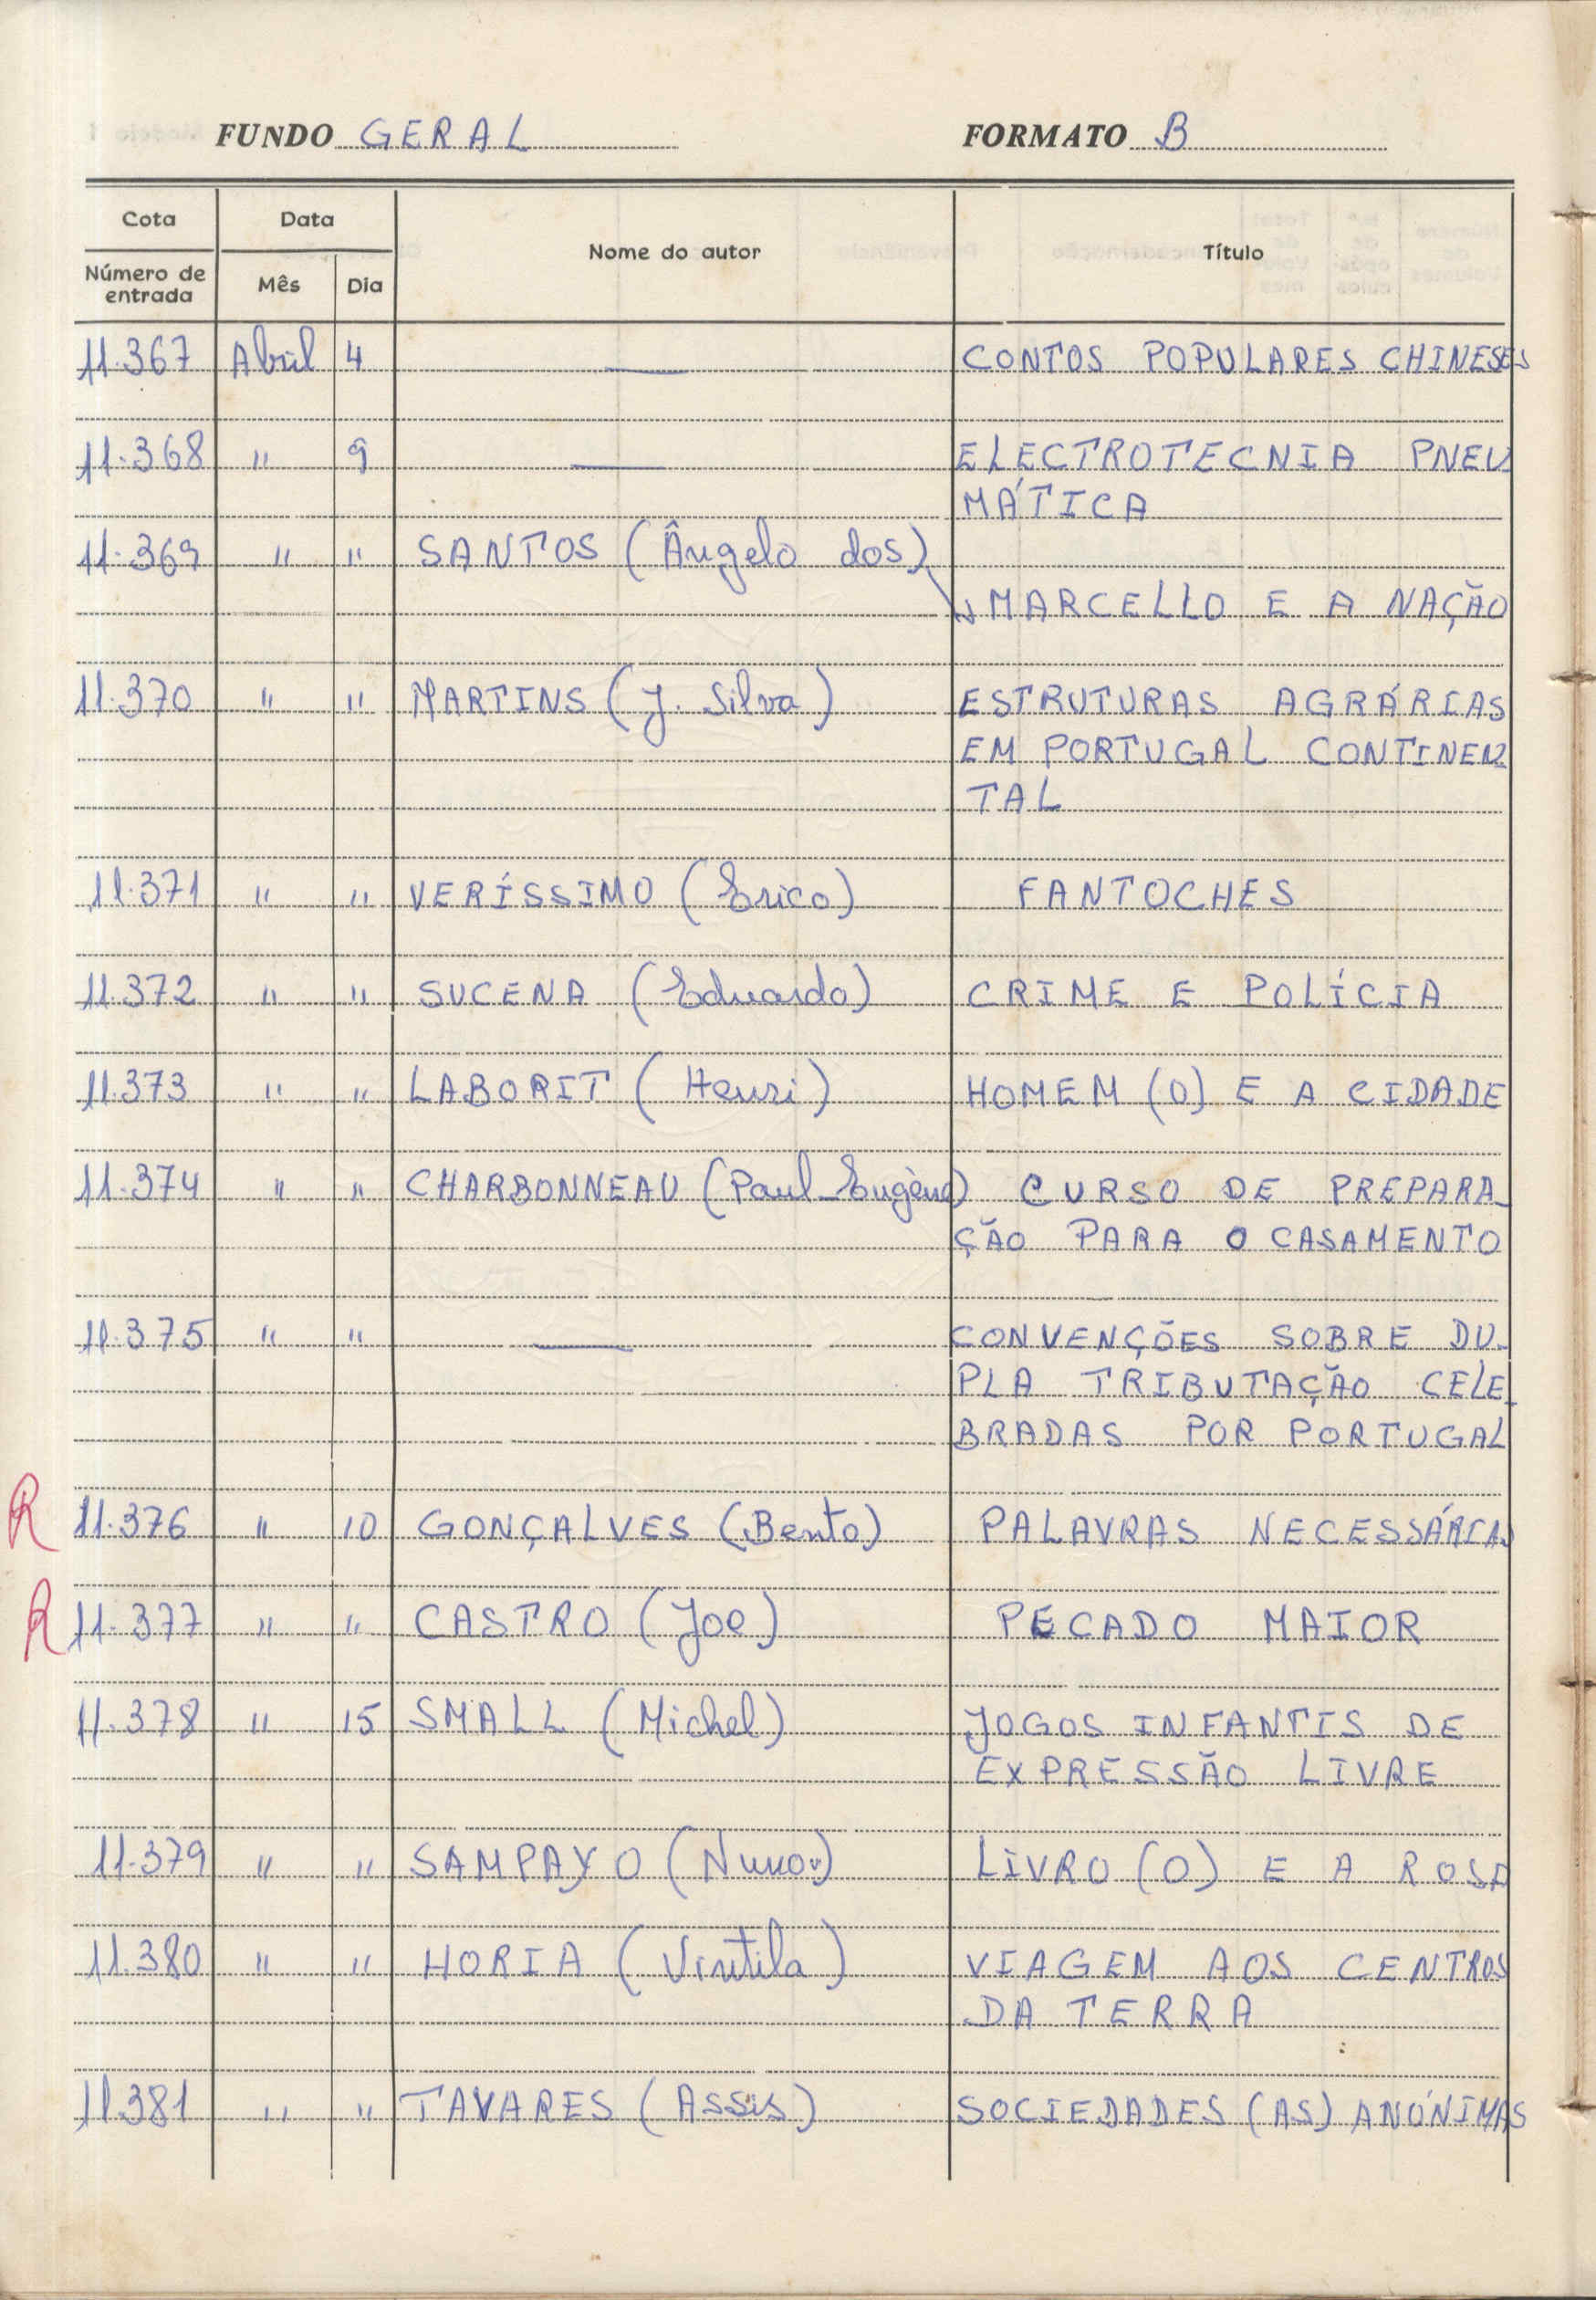 FUNDO GERAL FORMATO B
Cota Data Nome do autor Título
Número de entrada Mês Dia
11.367 Abril 4 — CONTOS POPULARES CHINESES
11.368 " 9 — ELECTROTECNIA PNEU
MÁTICA
11.369 " " SANTOS (Ângelo dos)
MARCELLO E A NAÇÃO
11.370 " " MARTINS (J. Silva) ESTRUTURAS AGRÁRIAS
EM PORTUGAL CONTINEN
TAL
11.371 " " VERÍSSIMO (Erico) FANTOCHES
11.372 " " SUCENA (Eduardo) CRIME E POLÍCIA
11.373 " " LABORIT (Henri) HOMEM (O) E A CIDADE
11.374 " " CHARBONNEAU (Paul-Eugène) CURSO DE PREPARA-
ÇÃO PARA O CASAMENTO
11.375 " " — CONVENÇÕES SOBRE DU-
PLA TRIBUTAÇÃO CELE-
BRADAS POR PORTUGAL
R 11.376 " 10 GONÇALVES (Bento) PALAVRAS NECESSÁRIAS
R 11.377 " " CASTRO (Joe) PECADO MAIOR
11.378 " 15 SMALL (Michel) JOGOS INFANTIS DE
EXPRESSÃO LIVRE
11.379 " " SAMPAYO (Nuno) LIVRO (O) E A ROSA
11.380 " " HORIA (Vintila) VIAGEM AOS CENTROS
DA TERRA
11.381 " " TAVARES (Assis) SOCIEDADES (AS) ANÓNIMAS